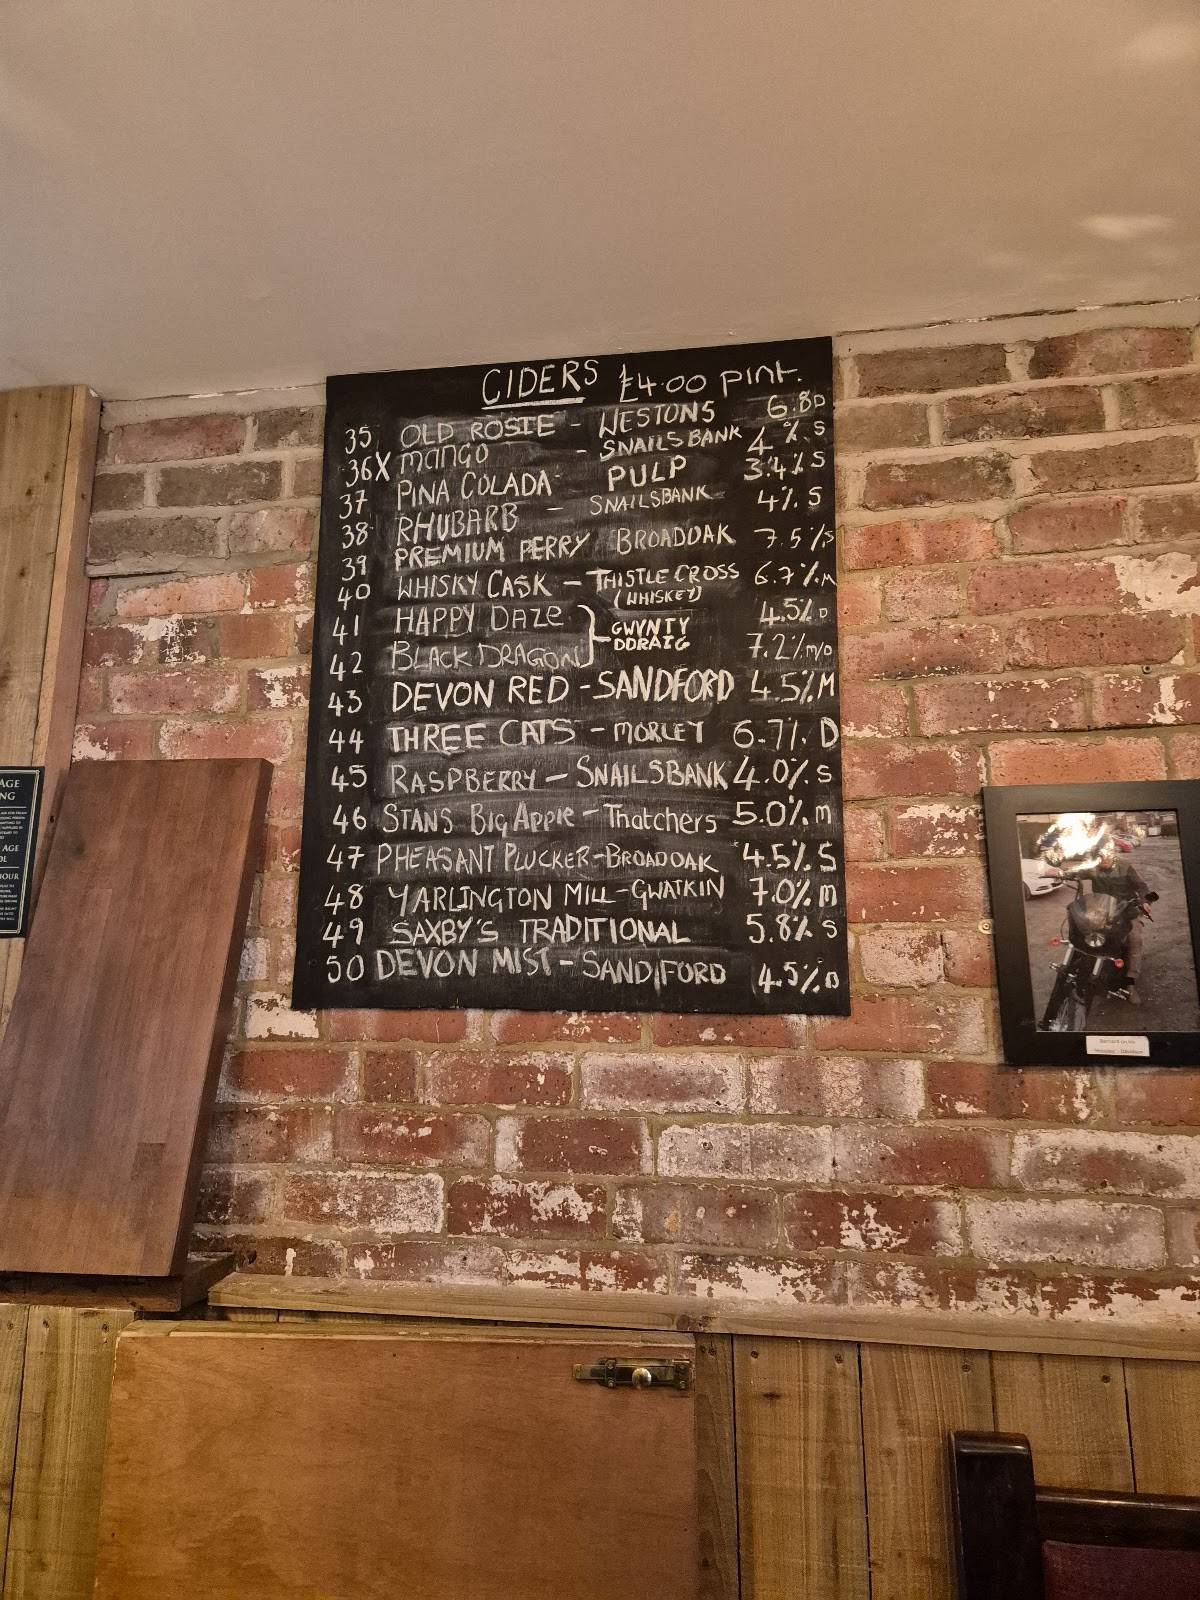 CIDERS £4.00 PINT.
35 OLD ROSIE - WESTONS 6.8D
36X MANGO - SNAILSBANK 4% S
37 PINA COLADA PULP 3.4% S
38 RHUBARB - SNAILSBANK 4% S
39 PREMIUM PERRY BROADOAK 7.5% S
40 WHISKY CASK - THISTLE CROSS 6.7% M
(WHISKEY)
41 HAPPY DAZE 4.5% D
GWYNTY
DDRAIG
42 BLACK DRAGON 7.2% M/D
43 DEVON RED - SANDFORD 4.5% M
44 THREE CATS - MORLEY 6.7% D
45 RASPBERRY - SNAILSBANK 4.0% S
46 STANS Big Apple - Thatchers 5.0% m
47 PHEASANT PLUCKER - BROADOAK 4.5% S
48 YARLINGTON MILL - GWATKIN 7.0% m
49 SAXBY'S TRADITIONAL 5.8% S
50 DEVON MIST - SANDIFORD 4.5% D
AGE
NG
AGE
OL
HOUR